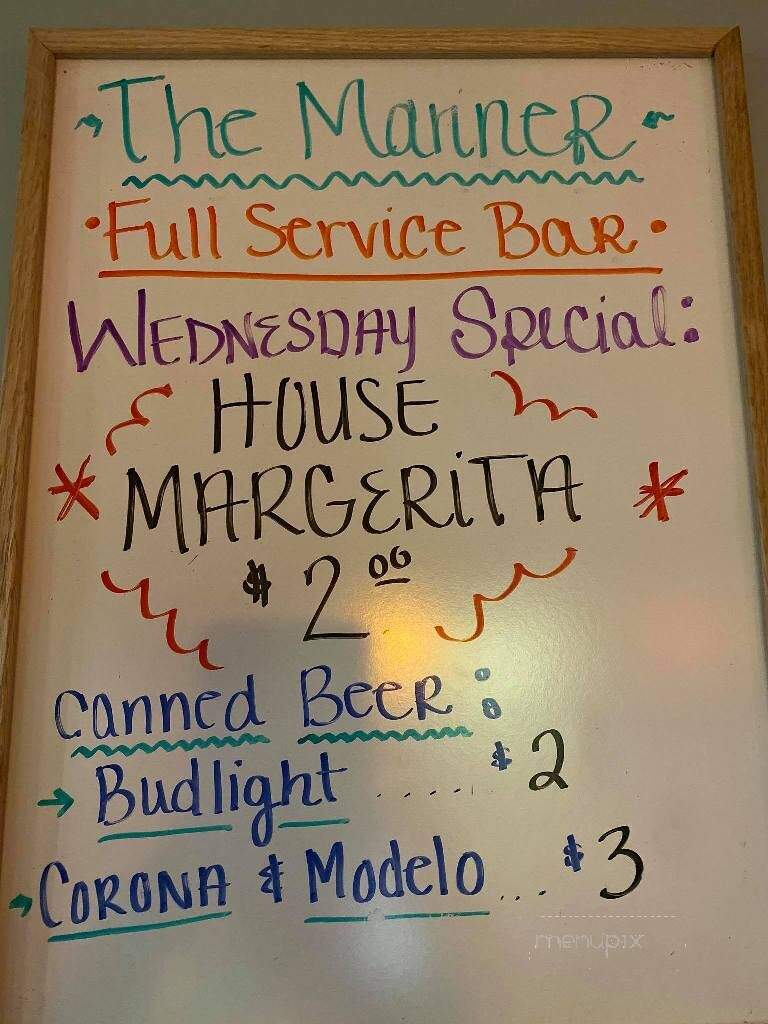 The Manner
• Full Service Bar •
WEDNESDAY Special:
HOUSE
* MARGERITA *
$2.00
Canned Beer:
→ Budlight ..... $2
→ CORONA & Modelo ... $3
menupix